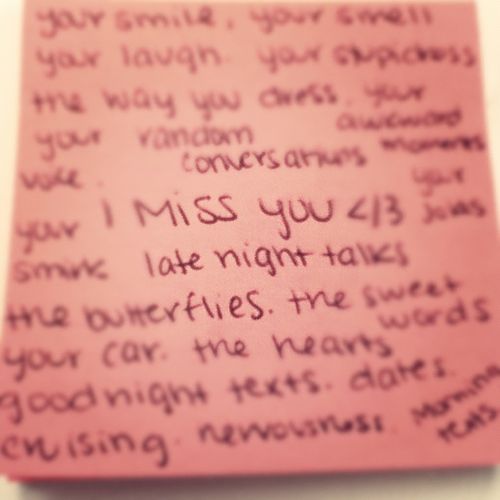 your smile. your smell
your laugh. your stupidness
the way you dress. your
your random awkward
voice. conversations moments
your I MISS you </3 your jokes
smirk late night talks
the butterflies. the sweet
your car. the hearts words
goodnight texts. dates.
cruising. nervousness. Morning texts